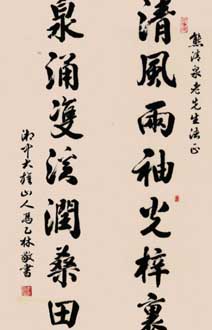 熊清泉老先生法正
清風雨袖光梓裏
泉涌雙溪潤桑田
湘中大雄山人馮乙林敬書